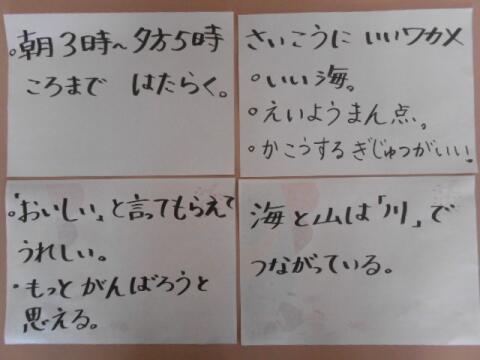 。朝3時~夕方5時
ころまで はたらく。
さいこうに いいワカメ
。いい海。
。えいようまん点。
。かこうするぎじゅつがいい!
。「おいしい」と言ってもらえて
うれしい。
・もっとがんばろうと
思える。
海と山は「川」で
つながっている。